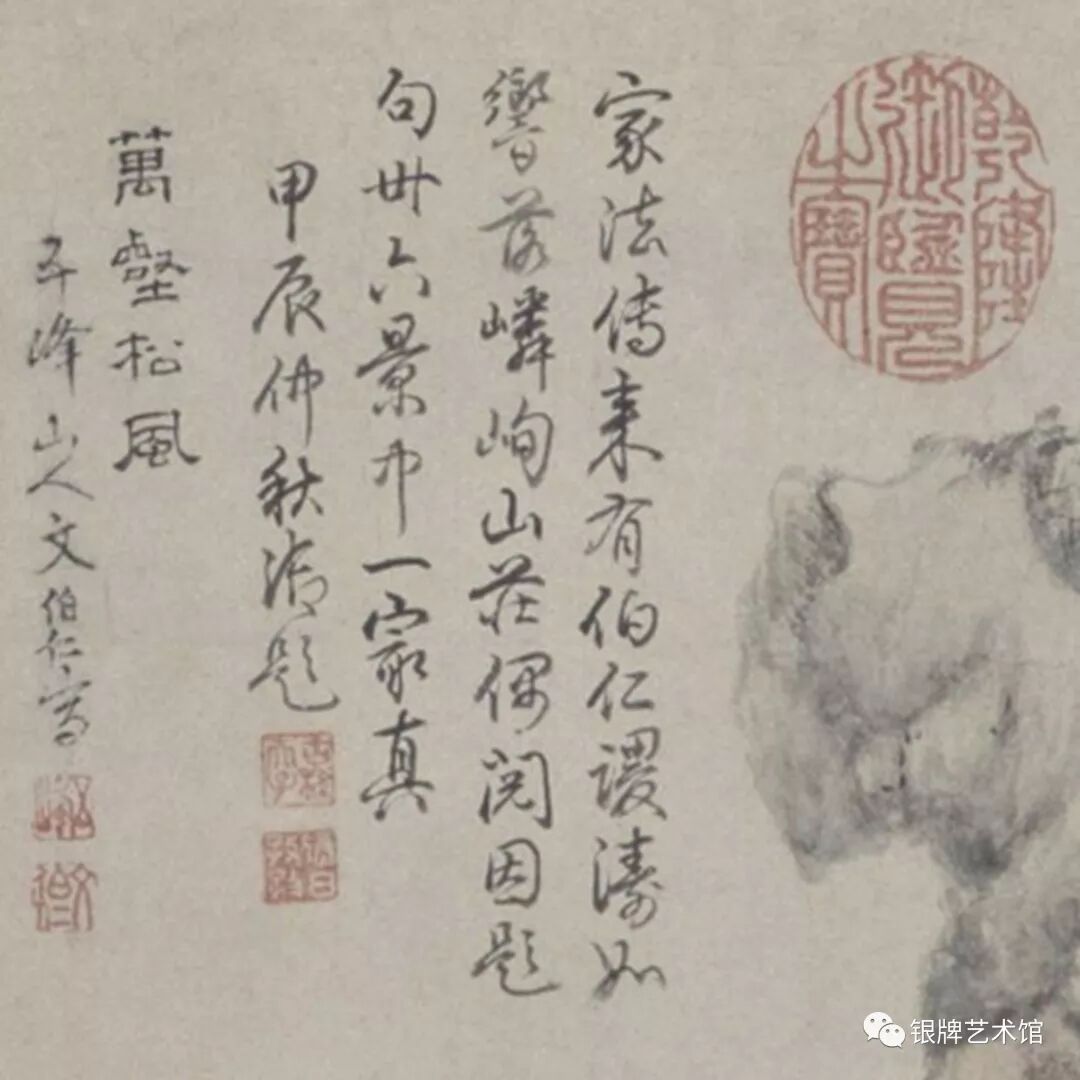 乾隆
御覽
之寶
家法傳來有伯仁謖濤如
響落嶙峋山莊偶閱因題
句卅六景中一家真
甲辰仲秋御題
古稀
天子
萬壑松風
五峰山人文伯仁寫
银牌艺术馆